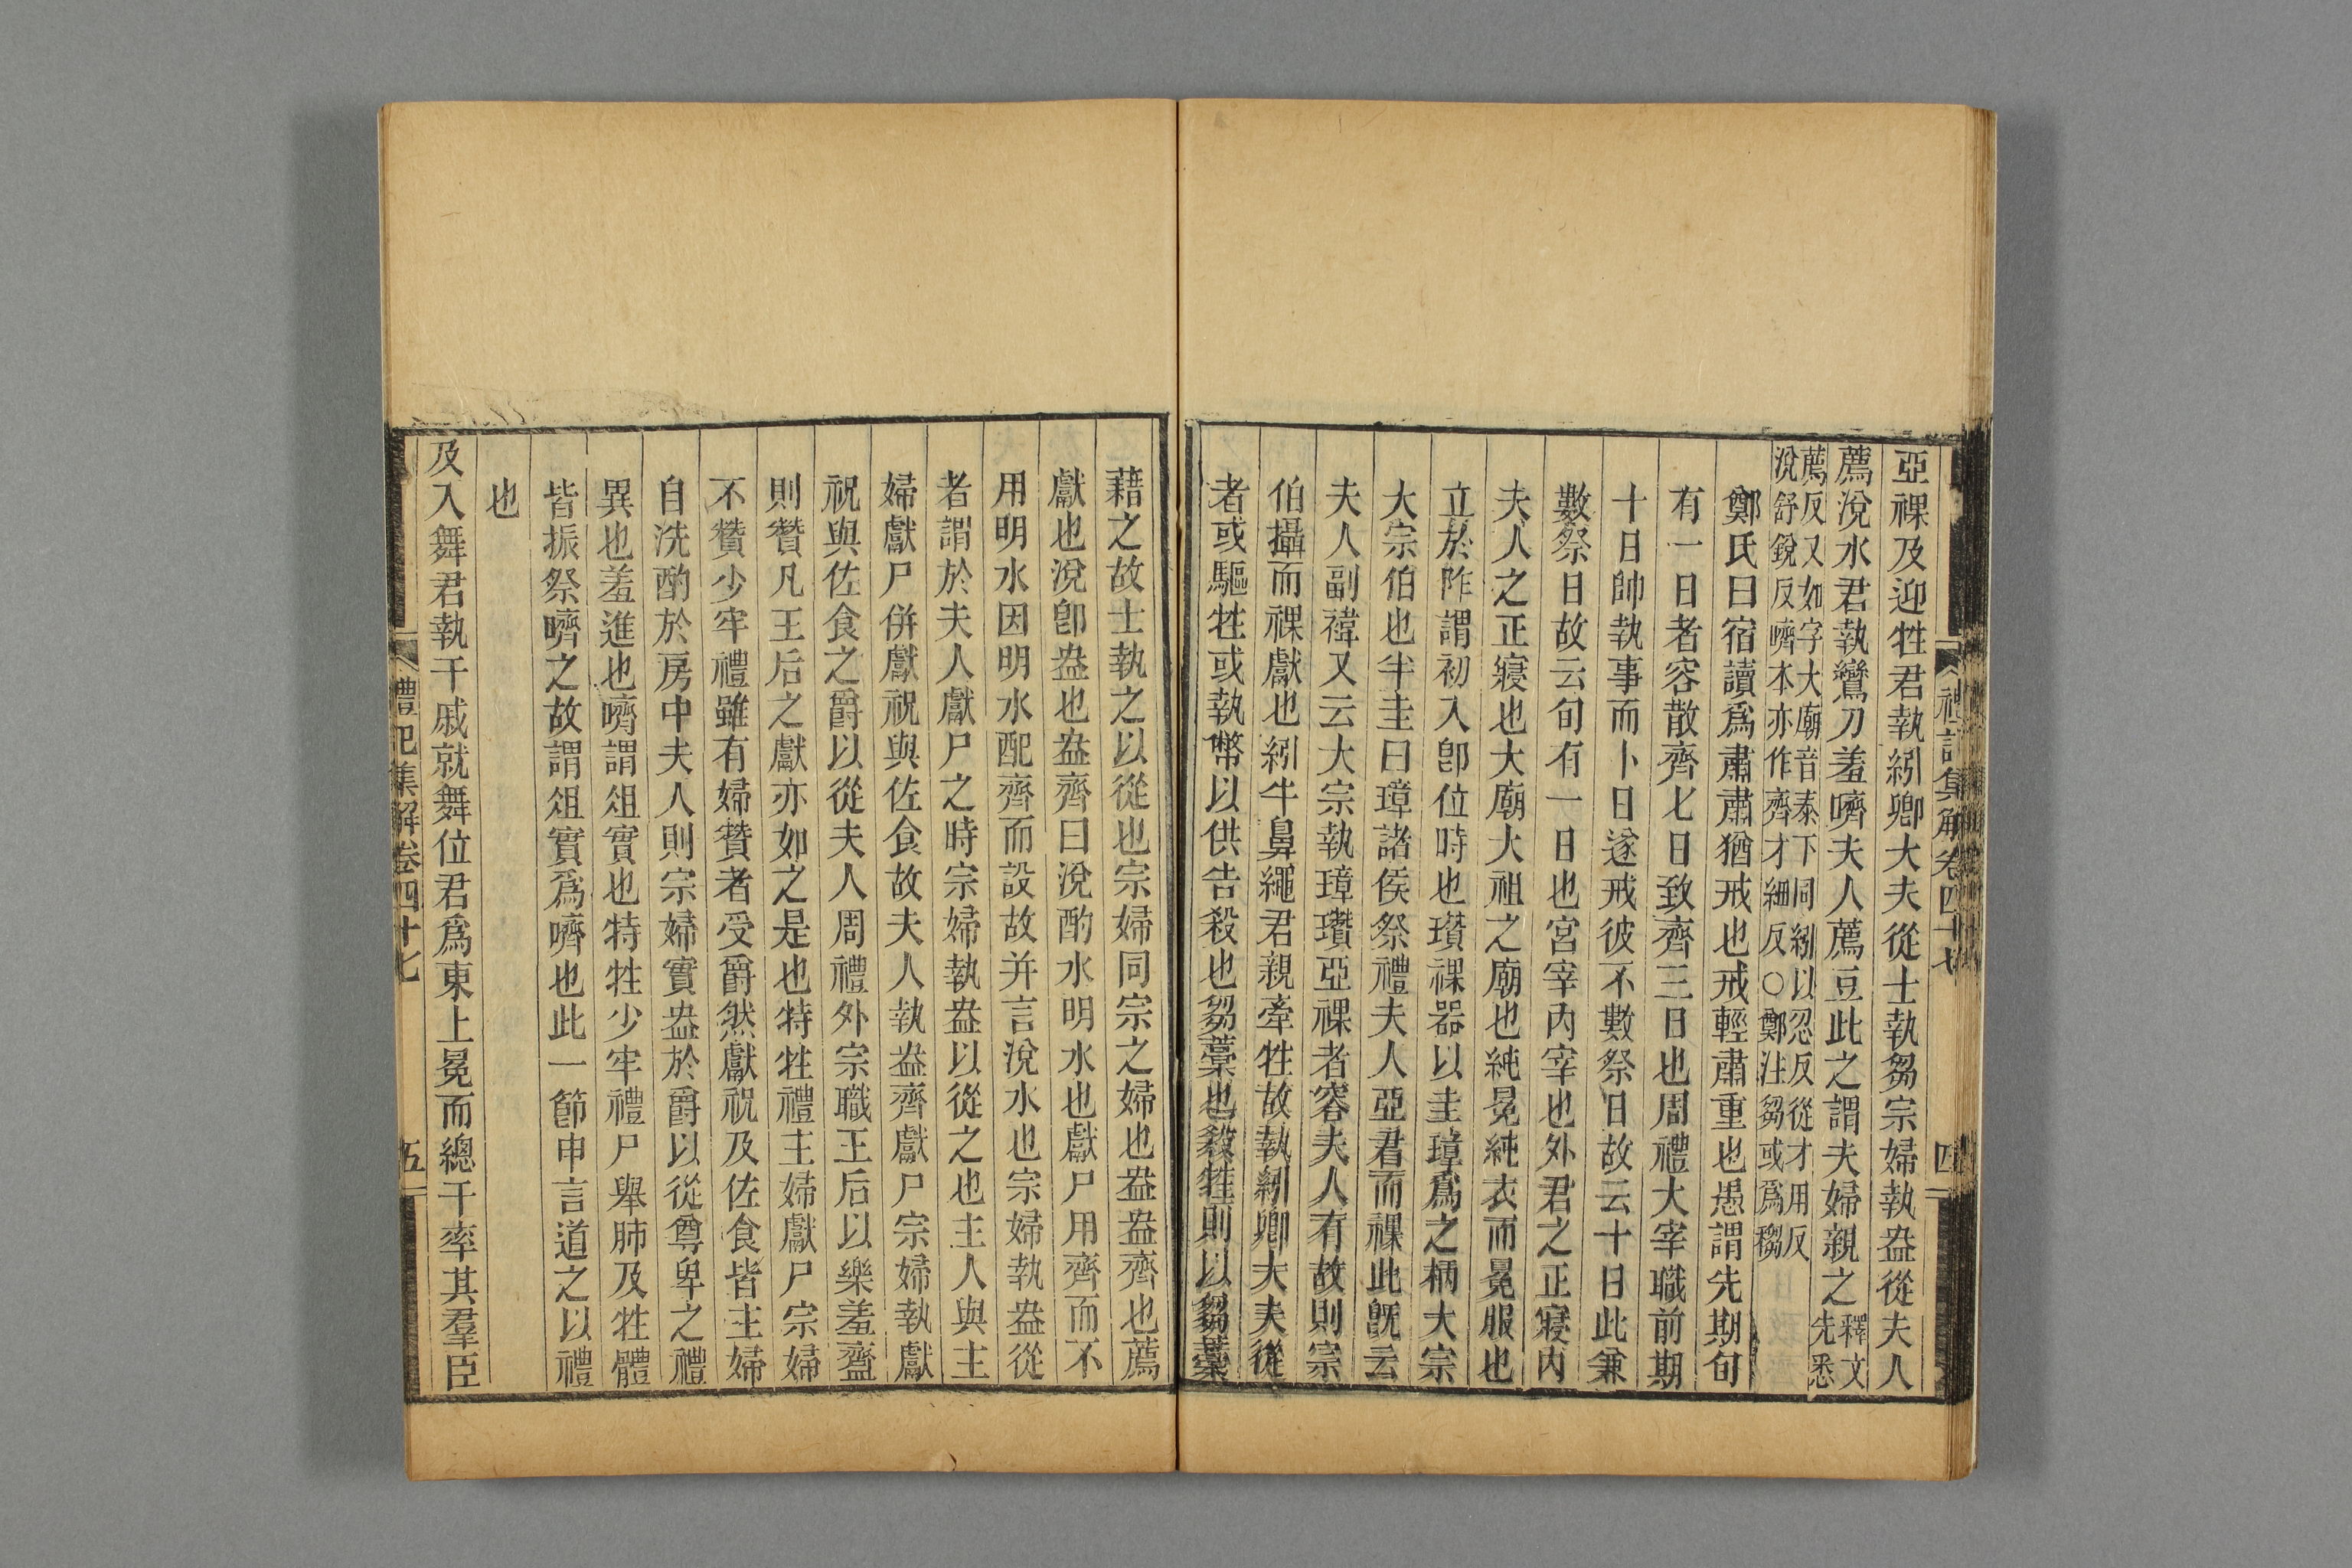 亞祼及迎牲君執紖卿大夫從士執芻宗婦執盎從夫人
薦涗水君執鸞刀羞嚌夫人薦豆此之謂夫婦親之釋文先悉
薦反又如字大廟音泰下同紖以忍反從才用反
涗舒銳反嚌本亦作齊才細反○鄭注芻或爲䅳
鄭氏曰宿讀爲肅肅猶戒也戒輕肅重也愚謂先期旬
有一日者容散齊七日致齊三日也周禮大宰職前期
十日帥執事而卜日遂戒彼不數祭日故云十日此兼
數祭日故云旬有一日也宮宰內宰也外君之正寢內
夫人之正寢也大廟大祖之廟也純冕純衣而冕服也
立於阼謂初入卽位時也瓚祼器以圭璋爲之柄大宗
大宗伯也半圭曰璋諸侯祭禮夫人亞君而祼此旣云
夫人副褘又云大宗執璋瓚亞祼者容夫人有故則宗
伯攝而祼獻也紖牛鼻繩君親牽牲故執紖卿大夫從
者或驅牲或執幣以供告殺也芻藁也殺牲則以芻藁
藉之故士執之以從也宗婦同宗之婦也盎盎齊也薦
獻也涗卽盎也盎齊曰涗酌水明水也獻尸用齊而不
用明水因明水配齊而設故并言涗水也宗婦執盎從
者謂於夫人獻尸之時宗婦執盎以從之也主人與主
婦獻尸併獻祝與佐食故夫人執盎齊獻尸宗婦執獻
祝與佐食之爵以從夫人周禮外宗職王后以樂羞齍
則贊凡王后之獻亦如之是也特牲禮主婦獻尸宗婦
不贊少牢禮雖有婦贊者受爵然獻祝及佐食皆主婦
自洗酌於房中夫人則宗婦實盎於爵以從尊卑之禮
異也羞進也嚌謂俎實也特牲少牢禮尸舉肺及牲體
皆振祭嚌之故謂俎實爲嚌也此一節申言道之以禮
也
及入舞君執干戚就舞位君爲東上冕而總干率其羣臣
禮記集解卷四十七
四
禮記集解卷四十七
五